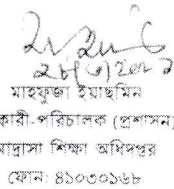 মাহফুজা ইয়াছমিন
কারী-পরিচালক (প্রশাসন)
মাদ্রাসা শিক্ষা অধিদপ্তর
ফোন: ৪১০৩০১৬৮